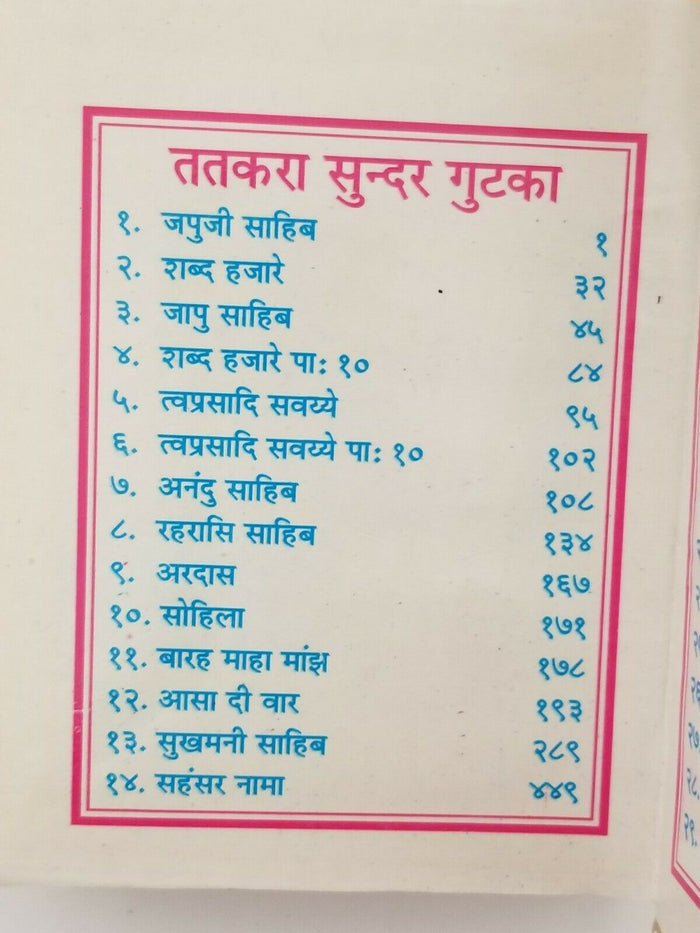 ततकरा सुन्दर गुटका
१. जपुजी साहिब १
२. शब्द हजारे ३२
३. जापु साहिब ४५
४. शब्द हजारे पाः १० ८४
५. त्वप्रसादि सवय्ये ९५
६. त्वप्रसादि सवय्ये पाः १० १०२
७. अनंदु साहिब १०८
८. रहरासि साहिब १३४
९. अरदास १६७
१०. सोहिला १७१
११. बारह माहा मांझ १७८
१२. आसा दी वार १९३
१३. सुखमनी साहिब २८९
१४. सहंसर नामा ४४९
२८.
२९.